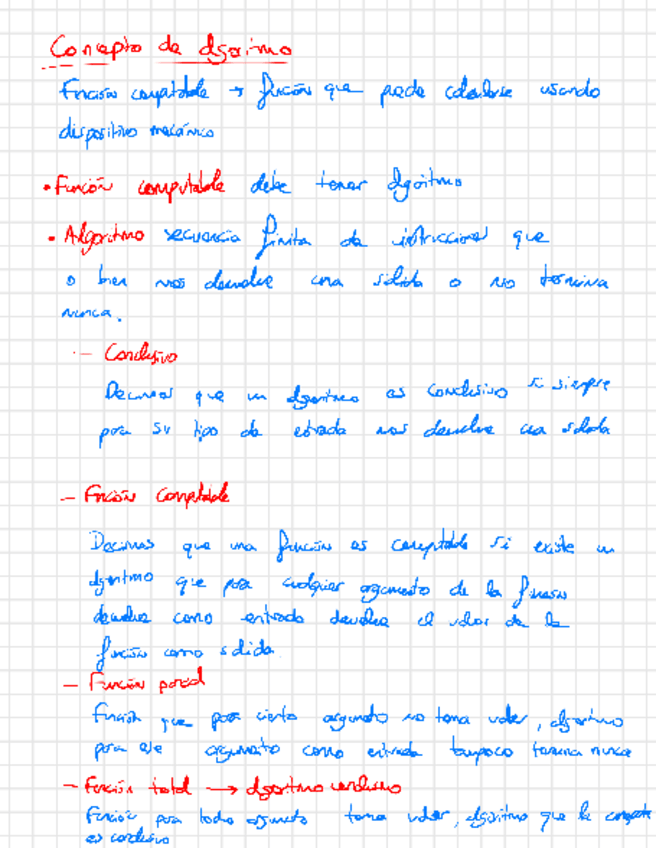 Concepto de algoritmo
Función computable → función que puede calcularse usando
dispositivo mecánico
• Función computable debe tener algoritmo
• Algoritmo secuencia finita de instrucciones que
o bien nos devuelve una salida o no termina
nunca.
- Conclusivo
Decimos que un algoritmo es conclusivo si siempre
para su tipo de entrada nos devuelve una salida
- Función computable
Decimos que una función es computable si existe un
algoritmo que para cualquier argumento de la función
devuelve como entrada devuelve el valor de la
función como salida.
- Función parcial
Función que para cierto argumento no toma valor, algoritmo
para ese argumento como entrada tampoco termina nunca
- Función total → algoritmo conclusivo
Función para todo argumento toma valor, algoritmo que la computa
es conclusivo